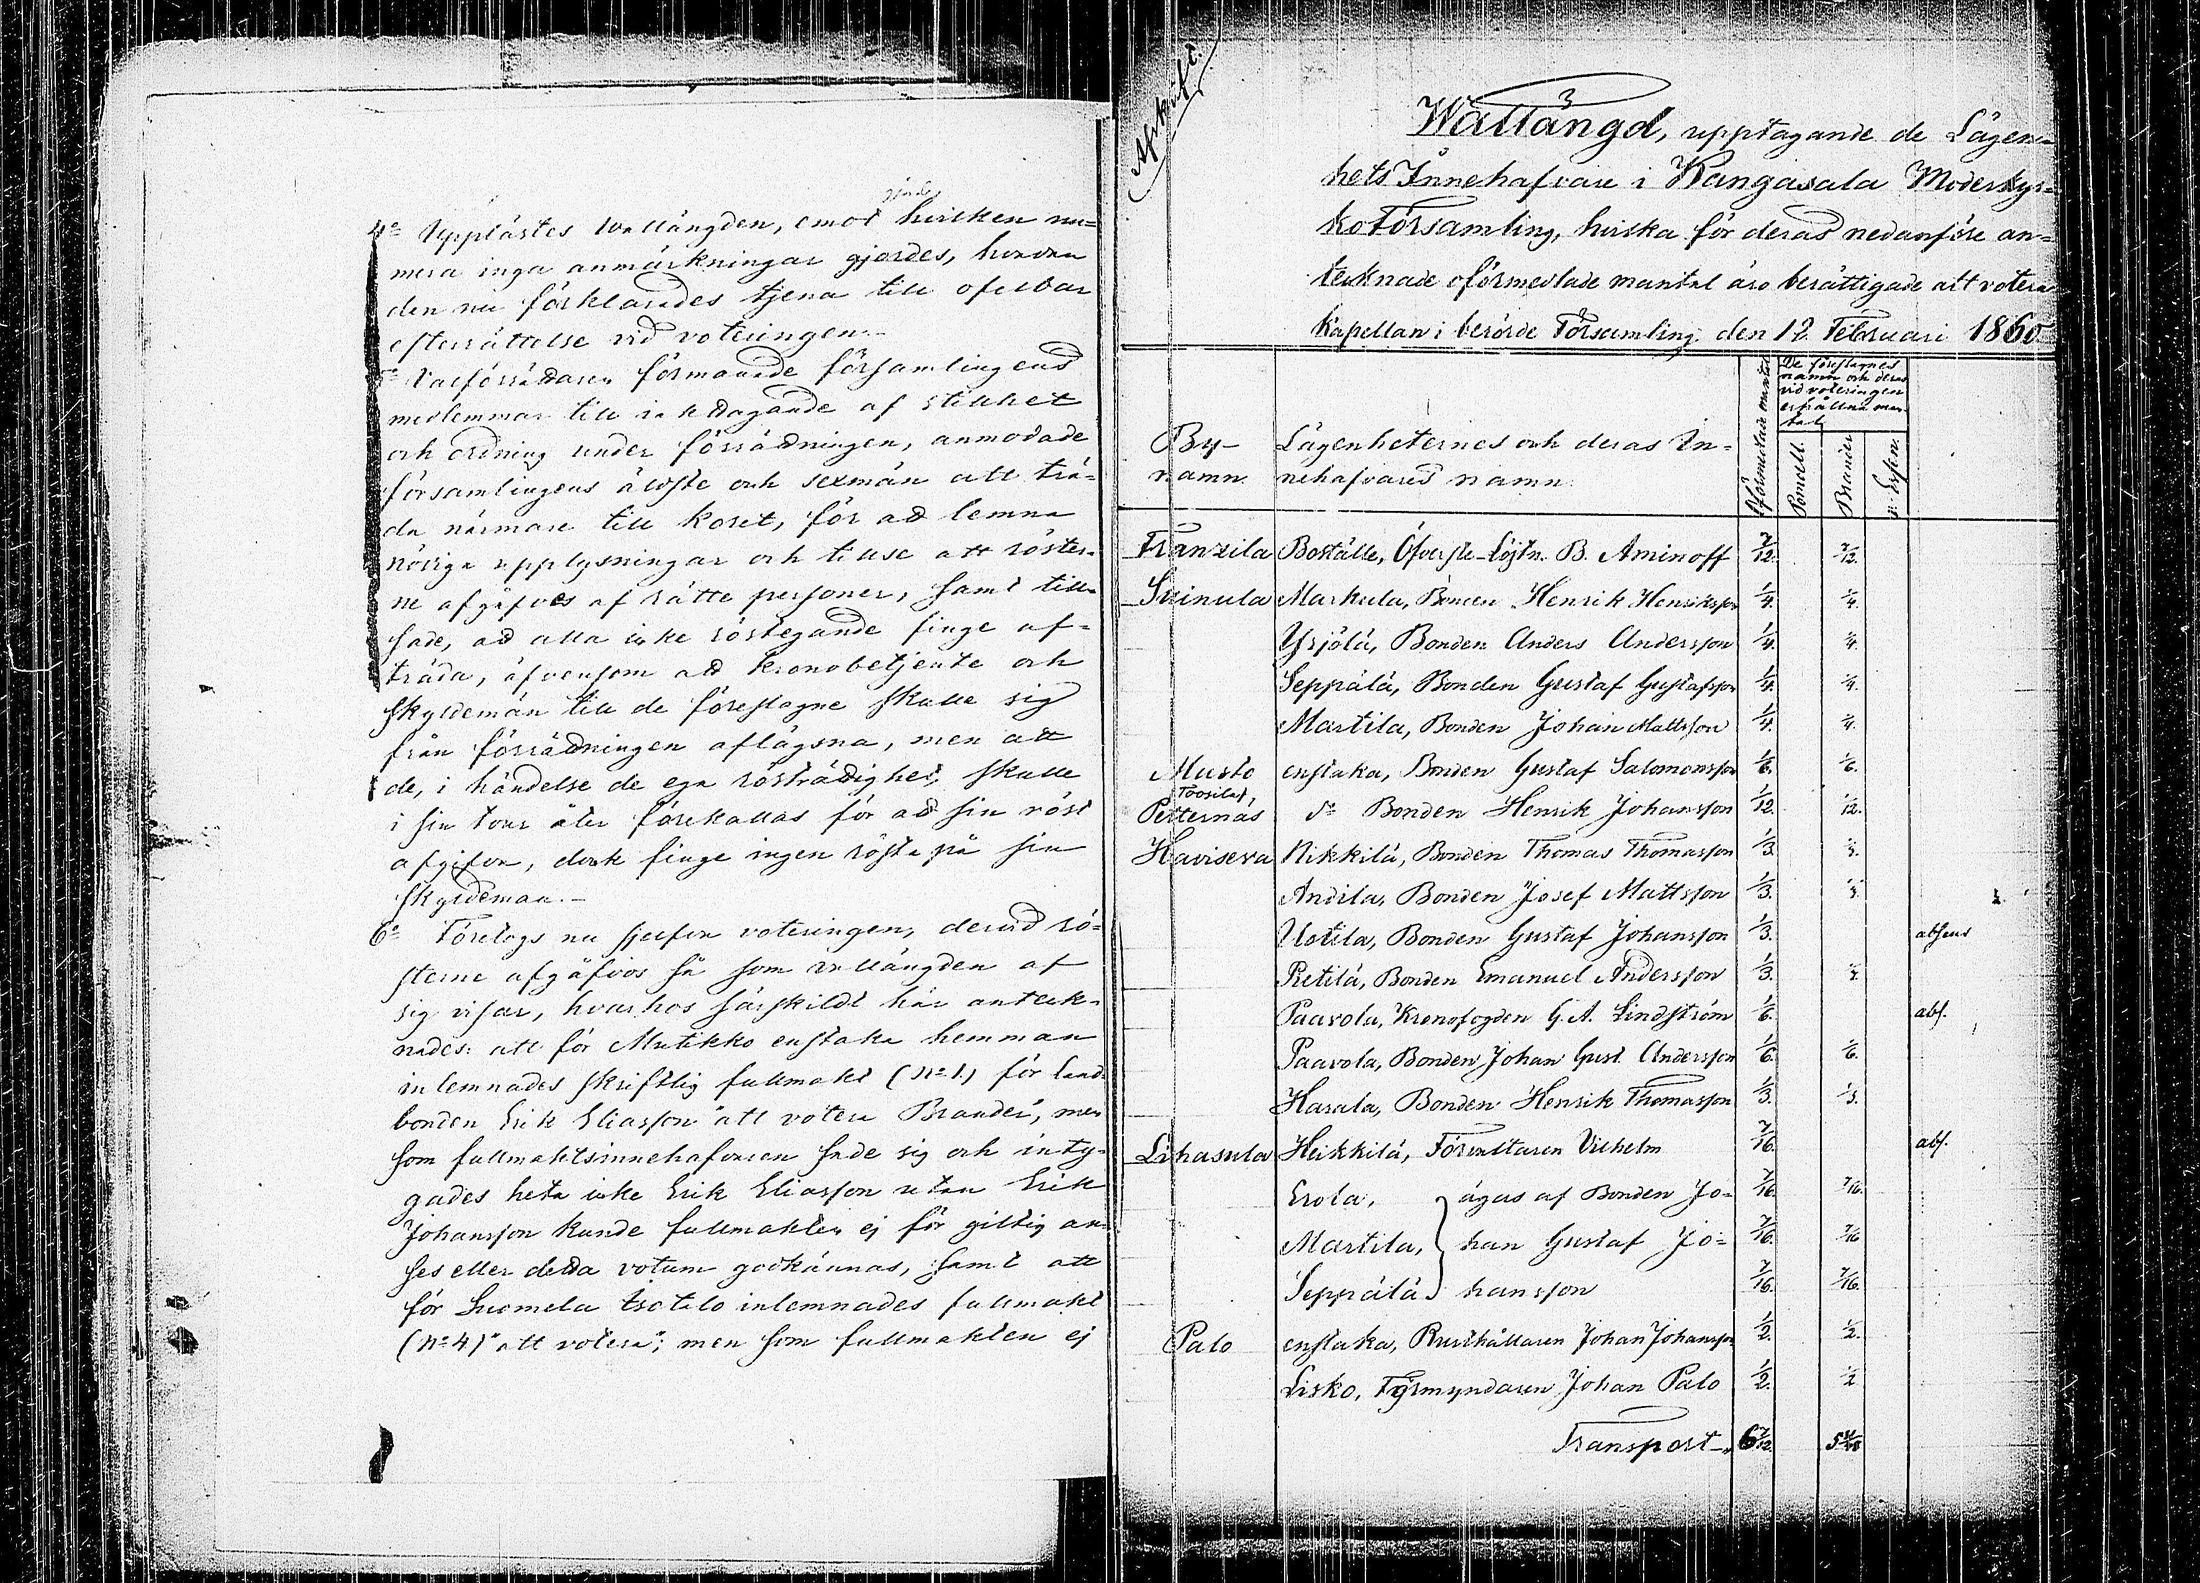 4o Upplästes Wallängden, emot hvilken nu-
mera inga anmärkningar gjordes, hvadan
den nu förklarades tjena till ofelbar
efterrättelse vid voteringen.-
5o Valförrättaren förmanade församlingens
medlemmar till iakttagande af stillhet
och ordning under förrättningen, anmodade
församlingens äldste och sexmän att trä-
da närmare till koret, för att lemna
nödiga upplysningar och tillse att röster-
ne afgåfvos af rätte personer, samt till-
sade, att alla icke röstegande finge af-
träda, äfvensom att kronobetjente och
skyldemän till de föreslagne skulle sig
från förrättningen aflägsna, men att
de, i händelse de ega rösträttighet, skulle
i sin tour åter förekallas för att sin röst
afgifva, dock finge ingen rösta på sin
skyldeman.-
6o Företogs nu sjelfva voteringen, dervid rö-
sterne afgåfvos så som vallängden af
sig visar, hvarhos särskildt här anteck-
nades: att för Mutikko enstaka hemman
inlemnades skriftlig fullmakt (No 1.) för land-
bonden Erik Eliasson "att votera Brander", men
som fullmaktsinnehafvaren sade sig och inty-
gades heta icke Erik Eliasson utan Erik
Johansson kunde fullmakten ej för giltig an-
ses eller detta votum godkännas, samt att
för Suomela Isotalo inlemnades fullmakt
(No 4) "att votera"; men som fullmakten ej
Afskrift.
3
Wallängd, upptagande de Lägen-
hets Innehafvare i Kangasala Moderkyr-
koförsamling, hvilka för deras nedanföre an-
tecknade oförmedlade mantal äro berättigade att votera
Kapellan i berörde Församling den 12 Februari 1860.
By-
namn.
Lägenheternes och deras In-
nehafvares namn.
Oförmedlade mantal
De föreslagnes
namn och deras
vid voteringen
erhållna man-
tal
Pomell.
Brander
Franzila Boställe, Öfverste-Löjtn. B. Aminoff 7/12. 7/12.
Suinula Markula, Bonden Henrik Henriksson 1/4. 1/4.
Yrjölä, Bonden Anders Andersson 1/4. 1/4.
Seppälä, Bonden Gustaf Gustafsson 1/4. 1/4.
Martila, Bonden Johan Mattsson 1/4. 1/4.
Musto enstaka, Bonden Gustaf Salomonsson 1/6. 1/6.
Toosila
Petternäs do Bonden Henrik Johansson 1/12. 1/12.
Haviseva Nikkilä, Bonden Thomas Thomasson 1/3. 1/3.
Andila, Bonden Josef Mattsson 1/3. 1/3.
Uotila, Bonden Gustaf Johansson 1/3. absens
Pietilä, Bonden Emanuel Andersson 1/3. 1/3.
Paavola, Kronofogden G. A. Lindström 1/6. abs.
Paavola, Bonden Johan Gust. Andersson 1/6. 1/6.
Harala, Bonden Henrik Thomasson 1/3. 1/3.
Lihasula Heikkilä, Förvaltaren Vilhelm 7/16. abs.
Erola, ägas af Bonden Jo- 7/16. 7/16.
Martila, han Gustaf Jo- 7/16. 7/16
Seppälä hansson 7/16. 7/16.
Palo enstaka, Rusthållaren Johan Johansson 1/2. 1/2.
Lisko, Förmyndaren Johan Palo 1/2. 1/2
Transport 6 7/12.